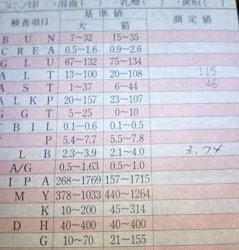 検査項目 基準値 測定値
犬 猫
BUN 7~32 15~35
CREA 0.5~1.6 0.9~2.6
GLU 67~132 75~134
ALT 13~100 20~108 115
AST 1~37 6~44 45
ALKP 20~157 23~107
GGT 5~25 0~10
TBIL 0.1~0.6 0.1~0.5
P 5.4~7.7 5.5~7.8
LB 2.3~3.9 2.1~4.0 3.74
A/G 0.5~1.63 0.5~1.0
IPA 268~1769 157~1715
MY 378~1033 440~1264
K 10~200 45~314
DH 40~400 40~400
G 10~70 21~155